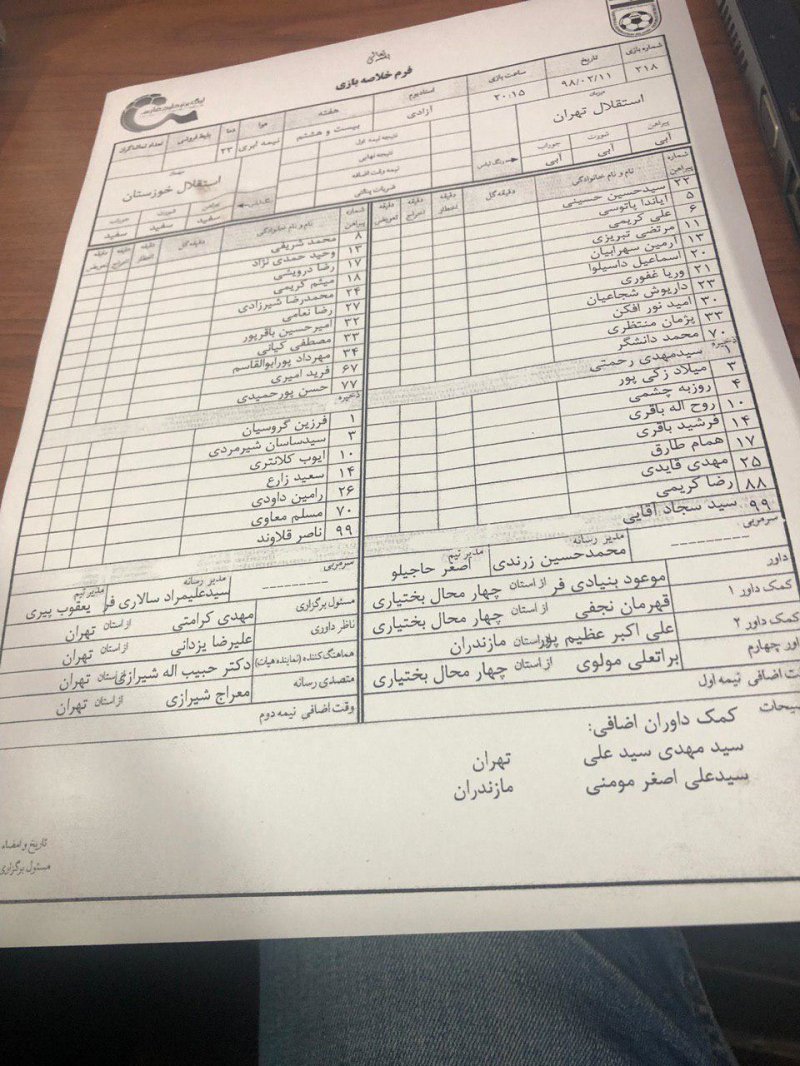 بسمه تعالی
فرم خلاصه بازی
شماره بازی
۲۱۸
تاریخ
۹۸/۰۲/۱۱
ساعت بازی
۲۰:۱۵
استادیوم
آزادی
هفته
بیست و هشتم
هوا
نیمه ابری
دما
۲۳
بلیط فروشی
تعداد تماشاگران
میزبان
استقلال تهران
پیراهن
آبی
شورت
آبی
جوراب
آبی
رنگ لباس
نتیجه نیمه اول
نتیجه نهایی
نیمه وقت اضافه
ضربات پنالتی
میهمان
استقلال خوزستان
رنگ لباس
پیراهن
سفید
شورت
سفید
جوراب
سفید
شماره پیراهن
نام و نام خانوادگی
دقیقه گل
دقیقه اخطار
دقیقه اخراج
دقیقه تعویض
۲۲ سیدحسین حسینی
۵ آیاندا پاتوسی
۶ علی کریمی
۱۱ مرتضی تبریزی
۱۳ آرمین سهرابیان
۲۰ اسماعیل داسیلوا
۲۱ وریا غفوری
۲۳ داریوش شجاعیان
۳۰ امید نور افکن
۳۳ پژمان منتظری
۷۰ محمد دانشگر
ذخیره
۱ سیدمهدی رحمتی
۳ میلاد زکی پور
۴ روزبه چشمی
۱۰ روح اله باقری
۱۴ فرشید باقری
۱۷ همام طارق
۲۵ مهدی قایدی
۸۸ رضا کریمی
۹۹ سید سجاد آقایی
سرمربی
----------
مدیر رسانه
محمدحسین زرندی
مدیر تیم
اصغر حاجیلو
شماره پیراهن
نام و نام خانوادگی
دقیقه گل
دقیقه اخطار
دقیقه اخراج
دقیقه تعویض
۸ محمد شریفی
۱۳ وحید حمدی نژاد
۱۷ رضا درویشی
۱۸ میثم کریمی
۲۴ محمدرضا شیرزادی
۲۷ رضا نعامی
۳۲ امیرحسین باقرپور
۳۳ مصطفی کیانی
۳۴ مهرداد پورابوالقاسم
۶۷ فرید امیری
۷۷ حسن پورحمیدی
ذخیره
۱ فرزین گروسیان
۳ سیدساسان شیرمردی
۱۰ ایوب کلانتری
۱۴ سعید زارع
۲۶ رامین داودی
۷۰ مسلم معاوی
۹۹ ناصر قلاوند
سرمربی
----------
مدیر رسانه
سیدعلیمراد سالاری فر
مدیر تیم
یعقوب پیری
داور
موعود بنیادی فر از استان چهار محال بختیاری
کمک داور ۱
قهرمان نجفی از استان چهار محال بختیاری
کمک داور ۲
علی اکبر عظیم پور از استان مازندران
داور چهارم
براتعلی مولوی از استان چهار محال بختیاری
وقت اضافی نیمه اول
مسئول برگزاری
مهدی کرامتی از استان تهران
ناظر داوری
علیرضا یزدانی از استان تهران
هماهنگ کننده (نماینده هیات)
دکتر حبیب اله شیرازی از استان تهران
متصدی رسانه
معراج شیرازی از استان تهران
وقت اضافی نیمه دوم
کمک داوران اضافی:
سید مهدی سید علی تهران
سیدعلی اصغر مومنی مازندران
تاریخ و امضاء
مسئول برگزاری